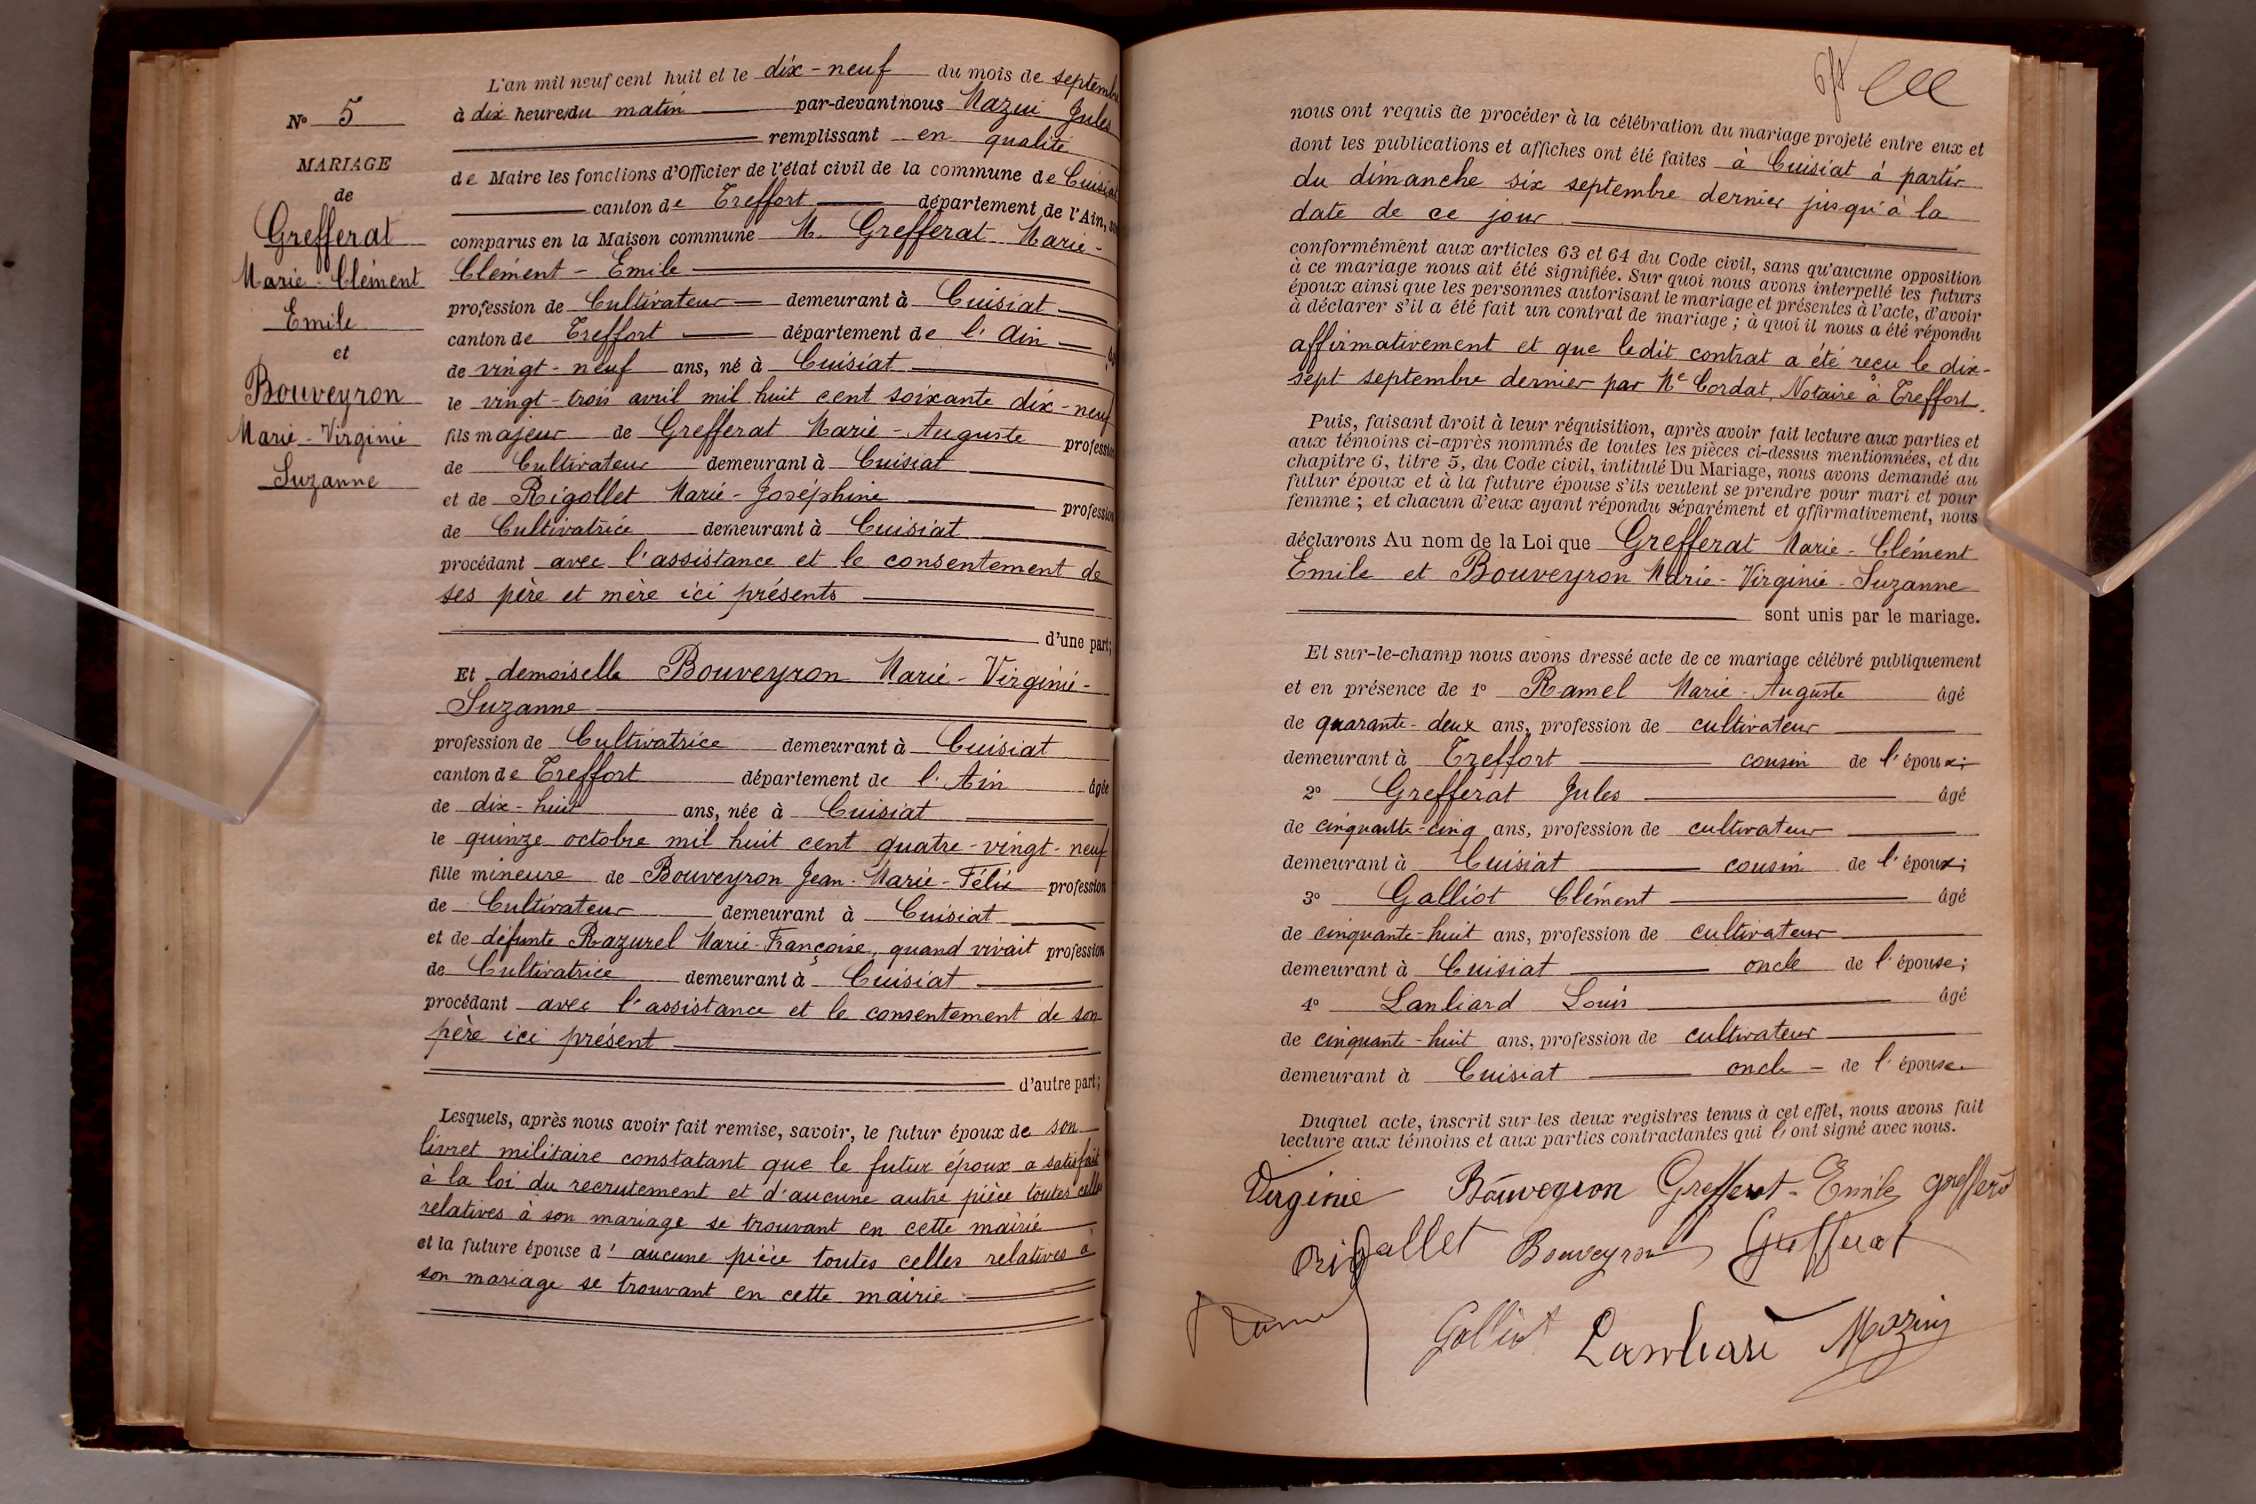 L'an mil neuf cent huit et le dix-neuf du mois de septembre
à dix heures du matin par-devant nous Mazui Jules
remplissant en qualité
de Maire les fonctions d'Officier de l'état civil de la commune de Cuisiat
canton de Treffort département de l'Ain, sont
comparus en la Maison commune M. Grefferat Marie-
Clément-Emile
profession de Cultivateur demeurant à Cuisiat
canton de Treffort département de l'Ain
de vingt-neuf ans, né à Cuisiat
le vingt-trois avril mil huit cent soixante dix-neuf
fils majeur de Grefferat Marie-Auguste profession
de Cultivateur demeurant à Cuisiat
et de Rigollet Marie-Joséphine profession
de Cultivatrice demeurant à Cuisiat
procédant avec l'assistance et le consentement de
ses père et mère ici présents
d'une part;
Et demoiselle Bouveyron Marie-Virginie-
Suzanne
profession de Cultivatrice demeurant à Cuisiat
canton de Treffort département de l'Ain âgée
de dix-huit ans, née à Cuisiat
le quinze octobre mil huit cent quatre-vingt-neuf
fille mineure de Bouveyron Jean-Marie-Félix profession
de Cultivateur demeurant à Cuisiat
et de défunte Razurel Marie-Françoise, quand vivait profession
de Cultivatrice demeurant à Cuisiat
procédant avec l'assistance et le consentement de son
père ici présent
d'autre part;
Lesquels, après nous avoir fait remise, savoir, le futur époux de son
livret militaire constatant que le futur époux a satisfait
à la loi du recrutement et d'aucune autre pièce toutes celles
relatives à son mariage se trouvant en cette mairie
et la future épouse d'aucune pièce toutes celles relatives à
son mariage se trouvant en cette mairie
No 5
MARIAGE
de
Grefferat
Marie-Clément
Emile
et
Bouveyron
Marie-Virginie
Suzanne
nous ont requis de procéder à la célébration du mariage projeté entre eux et
dont les publications et affiches ont été faites à Cuisiat à partir
du dimanche six septembre dernier jusqu'à la
date de ce jour
conformément aux articles 63 et 64 du Code civil, sans qu'aucune opposition
à ce mariage nous ait été signifiée. Sur quoi nous avons interpellé les futurs
époux ainsi que les personnes autorisant le mariage et présentes à l'acte, d'avoir
à déclarer s'il a été fait un contrat de mariage; à quoi il nous a été répondu
affirmativement et que ledit contrat a été reçu le dix-
sept septembre dernier par Me Cordat, Notaire à Treffort.
Puis, faisant droit à leur réquisition, après avoir fait lecture aux parties et
aux témoins ci-après nommés de toutes les pièces ci-dessus mentionnées, et du
chapitre 6, titre 5, du Code civil, intitulé Du Mariage, nous avons demandé au
futur époux et à la future épouse s'ils veulent se prendre pour mari et pour
femme; et chacun d'eux ayant répondu séparément et affirmativement, nous
déclarons Au nom de la Loi que Grefferat Marie-Clément
Emile et Bouveyron Marie-Virginie-Suzanne
sont unis par le mariage.
Et sur-le-champ nous avons dressé acte de ce mariage célébré publiquement
et en présence de 1o Ramel Marie-Auguste âgé
de quarante-deux ans, profession de cultivateur
demeurant à Treffort cousin de l'époux;
2o Grefferat Jules âgé
de cinquante-cinq ans, profession de cultivateur
demeurant à Cuisiat cousin de l'époux;
3o Galliot Clément âgé
de cinquante-huit ans, profession de cultivateur
demeurant à Cuisiat oncle de l'épouse;
4o Lanliard Louis âgé
de cinquante-huit ans, profession de cultivateur
demeurant à Cuisiat oncle de l'épouse.
Duquel acte, inscrit sur les deux registres tenus à cet effet, nous avons fait
lecture aux témoins et aux parties contractantes qui l'ont signé avec nous.
Virginie Bouveyron Grefferat-Emile Grefferat
Rigollet Bouveyron Grefferat
Ramel Galliot Lanliard